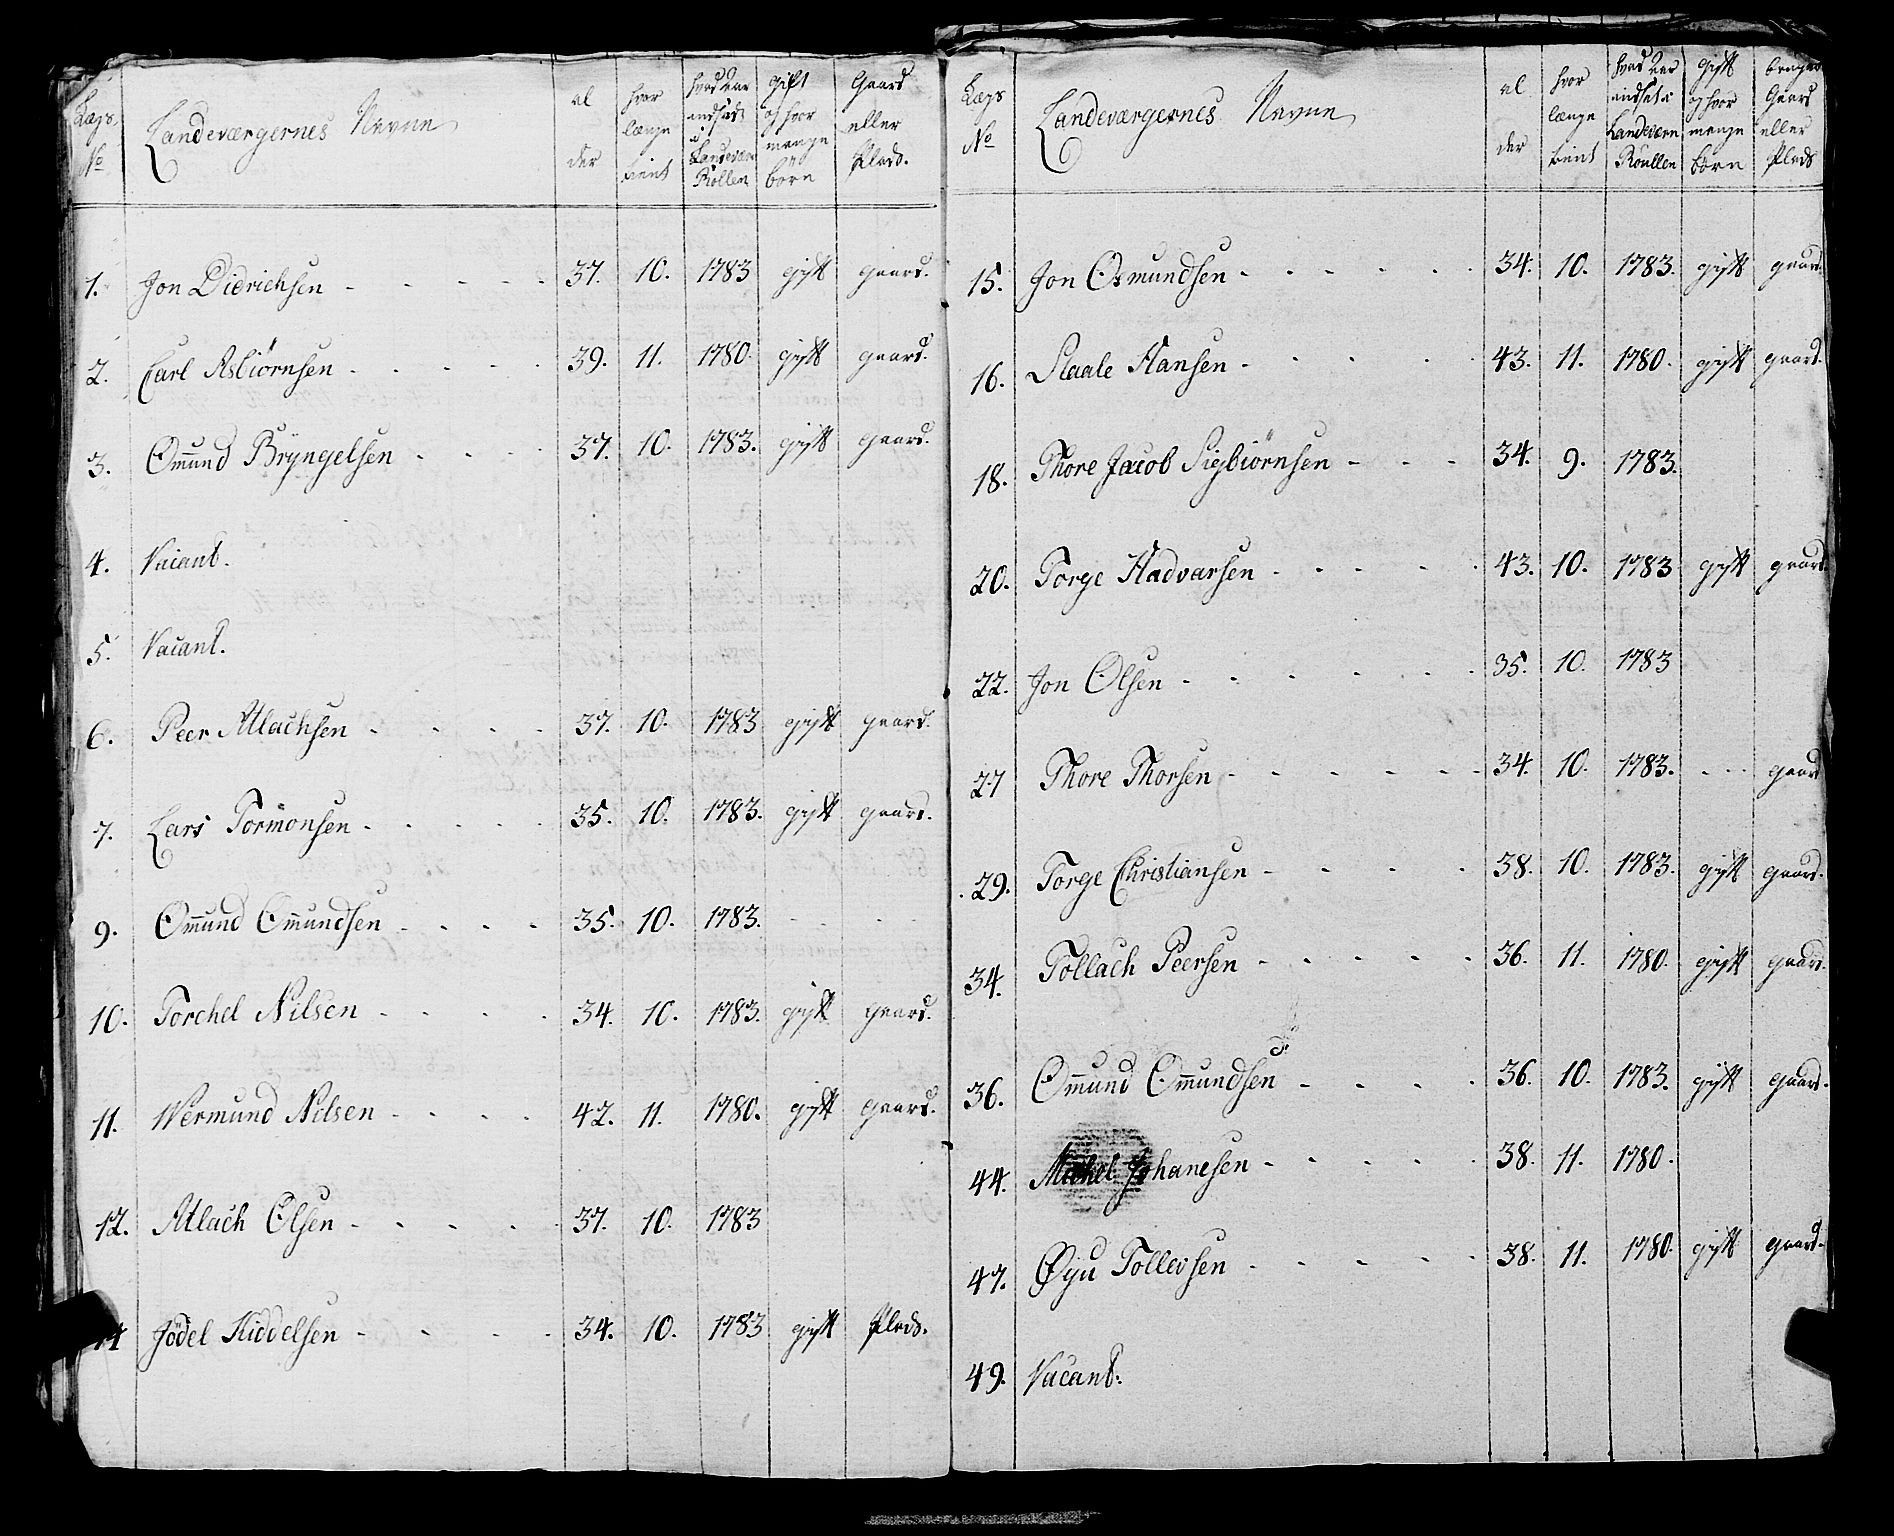 Lægs No | Landeværgernes Navne | al der | hvor længe tient | hvad Aar indsadt i Landeværn Rollen | gift og hvor mange børn | Gaard eller Plads.
1. Jon Didrichsen - - - - - 37. 10. 1783 gift gaard.
2. Carl Asbiörnsen - - - - - 39. 11. 1780. gift gaard.
3. Om̄und Bryngelsen - - - - 37. 10. 1783. gift gaard.
4. Vacant.
5. Vacant.
6. Peer Atlachsen - - - - 37. 10. 1783 gift gaard.
7. Lars Tormonsen - - - - - 35. 10. 1783. gift gaard.
9. Om̄und Om̄undsen - - - - 35. 10. 1783. - -
10. Torchel Nilsen - - - - 34. 10. 1783. gift gaard.
11. Wermund Nilsen - - - - 42. 11. 1780. gift gaard.
12. Atlach Olsen - - - - - 37. 10. 1783
14 Jödel Kiddelsen - - - - 34. 10. 1783 gift Plads.
Lægs No | Landeværgernes Navne | al der | hvor længe tient | hvad Aar indsat i Landeværn Roullen | gift og hvor mange börn | bruger Gaard eller Plads
15. Jon Osmundsen - - - - - - 34. 10. 1783. gift gaard.
16. Staale Hansen - - - - - 43. 11. 1780. gift gaard.
18. Thore Jacob Sigbiörnsen - - - 34. 9. 1783.
20. Torge Hadvarsen - - - - - 43. 10. 1783 gift gaard.
22. Jon Olsen - - - - - - - 35. 10. 1783
27 Thore Thorsen - - - - - - 34. 10. 1783. - - - gaard
29. Torge Christiansen - - - - 38. 10. 1783. gift gaard.
34. Tollach Peersen - - - - - 36. 11. 1780. gift gaard.
36. Om̄und Om̄undsen - - - - 36. 10. 1783. gift gaard.
44. Michel Johanesen - - - - - 38. 11. 1780.
47. Øyu Tollevsen - - - - - 38. 11. 1780. gift gaard.
49. Vacant.